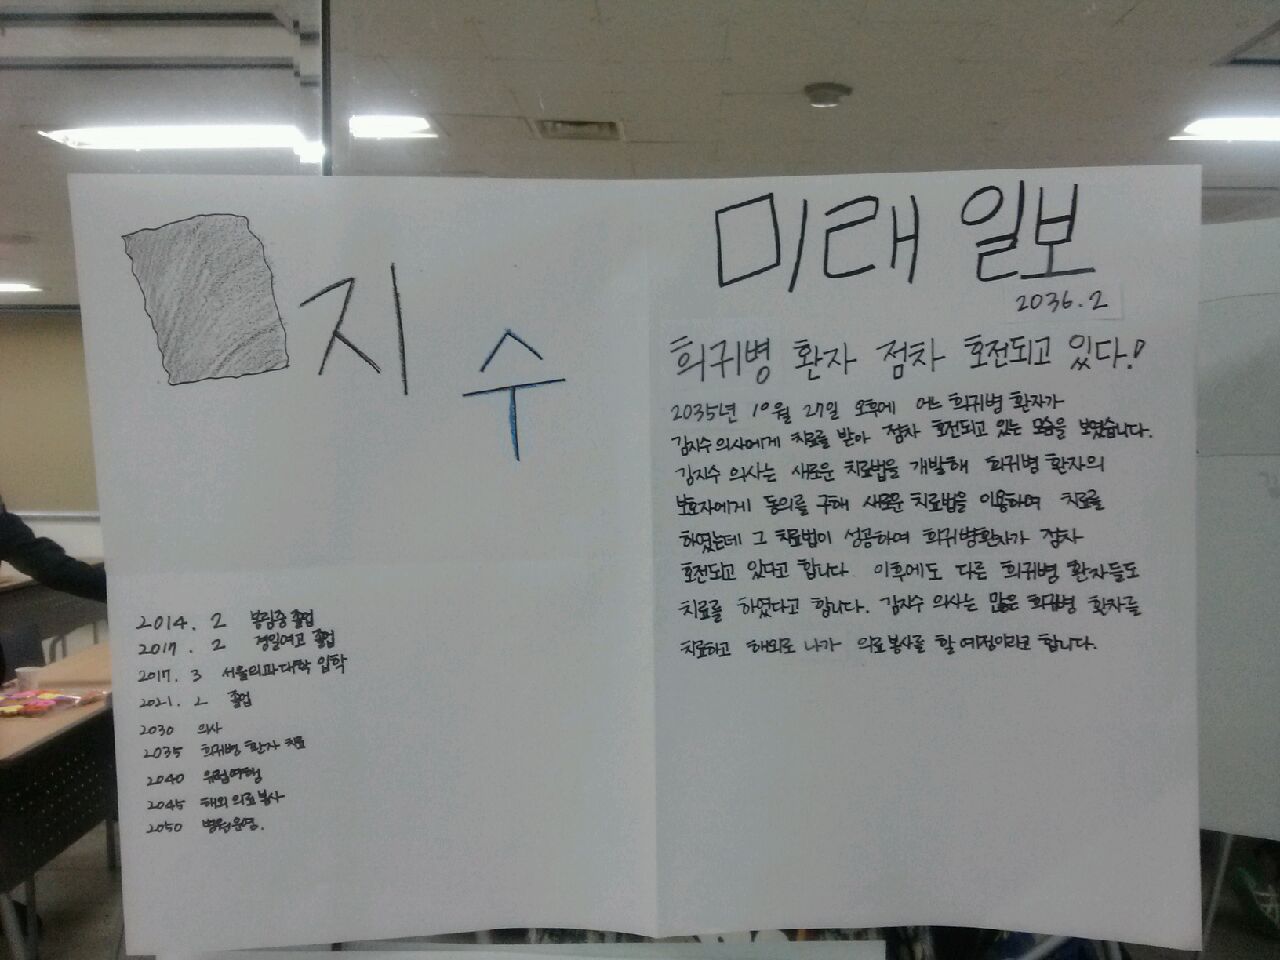 지
수
2014. 2 봉림중 졸업
2017. 2 경일여고 졸업
2017. 3 서울의과대학 입학
2021. 2 졸업
2030 의사
2035 희귀병 환자 치료
2040 유럽여행
2045 해외 의료 봉사
2050 병원운영.
미래 일보
2036.2
희귀병 환자 점차 호전되고 있다!
2035년 10월 27일 오후에 어느 희귀병 환자가
김지수 의사에게 치료를 받아 점차 호전되고 있는 모습을 보였습니다.
김지수 의사는 새로운 치료법을 개발해 희귀병 환자의
보호자에게 동의를 구해 새로운 치료법을 이용하여 치료를
하였는데 그 치료법이 성공하여 희귀병환자가 점차
호전되고 있다고 합니다. 이후에도 다른 희귀병 환자들도
치료를 하였다고 합니다. 김지수 의사는 많은 희귀병 환자를
치료하고 해외로 나가 의료봉사를 할 예정이라고 합니다.